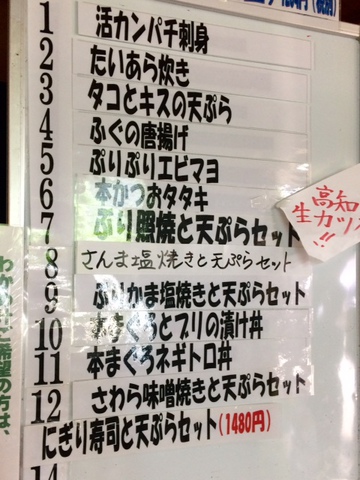 1 活カンパチ刺身
2 たいあら炊き
3 タコとキスの天ぷら
4 ふぐの唐揚げ
5 ぷりぷりエビマヨ
6 本かつおタタキ
7 ぶり照焼と天ぷらセット
8 さんま塩焼きと天ぷらセット
9 ぶりかま塩焼きと天ぷらセット
10 本まぐろとブリの漬け丼
11 本まぐろネギトロ丼
12 さわら味噌焼きと天ぷらセット
にぎり寿司と天ぷらセット(1480円)
14
高知
生カツオ
!!
ご希望の方は、